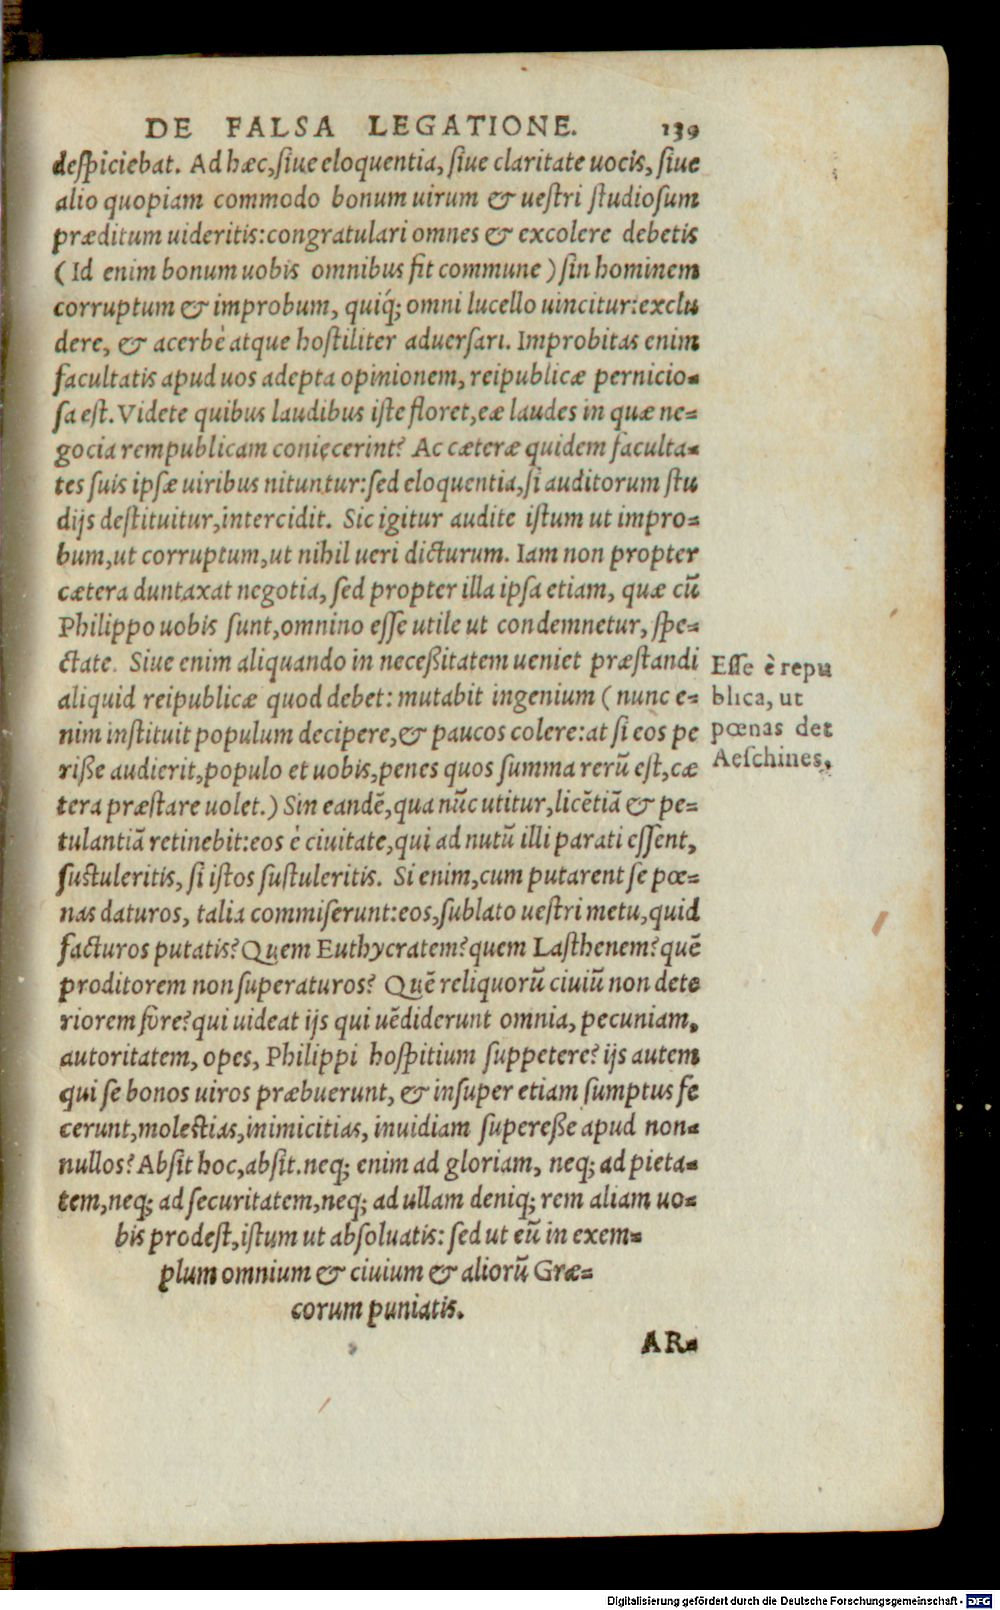 DE FALSA LEGATIONE. 139
despiciebat. Ad hæc, siue eloquentia, siue claritate uocis, siue
alio quopiam commodo bonum uirum & uestri studiosum
præditum uideritis: congratulari omnes & excolere debetis
(Id enim bonum uobis omnibus fit commune) sin hominem
corruptum & improbum, quiq́; omni lucello uincitur: exclu
dere, & acerbè atque hostiliter aduersari. Improbitas enim
facultatis apud uos adepta opinionem, reipublicæ pernicio-
sa est. Videte quibus laudibus iste floret, eæ laudes in quæ ne-
gocia rempublicam coniecerint? Ac cæteræ quidem faculta-
tes suis ipsæ uiribus nituntur: sed eloquentia, si auditorum stu
dijs destituitur, intercidit. Sic igitur audite istum ut impro-
bum, ut corruptum, ut nihil ueri dicturum. Iam non propter
cætera duntaxat negotia, sed propter illa ipsa etiam, quæ cū
Philippo uobis sunt, omnino esse utile ut condemnetur, spe-
ctate. Siue enim aliquando in necessitatem ueniet præstandi
aliquid reipublicæ quod debet: mutabit ingenium (nunc e-
nim instituit populum decipere, & paucos colere: at si eos pe
risse audierit, populo et uobis, penes quos summa rerū est, cæ
tera præstare uolet.) Sin eandē, qua nūc utitur, licētiā & pe-
tulantiā retinebit: eos è ciuitate, qui ad nutū illi parati essent,
sustuleritis, si istos sustuleritis. Si enim, cum putarent se pœ-
nas daturos, talia commiserunt: eos, sublato uestri metu, quid
facturos putatis? Quem Euthycratem? quem Lasthenem? quē
proditorem non superaturos? Quē reliquorū ciuiū non dete
riorem fore? qui uideat ijs qui uēdiderunt omnia, pecuniam,
autoritatem, opes, Philippi hospitium suppetere? ijs autem
qui se bonos uiros præbuerunt, & insuper etiam sumptus fe
cerunt, molestias, inimicitias, inuidiam superesse apud non-
nullos? Absit hoc, absit. neq; enim ad gloriam, neq; ad pieta-
tem, neq; ad securitatem, neq; ad ullam deniq; rem aliam uo-
bis prodest, istum ut absoluatis: sed ut eū in exem-
plum omnium & ciuium & aliorū Græ-
corum puniatis.
AR-
Esse è repu
blica, ut
pœnas det
Aeschines.
Digitalisierung gefördert durch die Deutsche Forschungsgemeinschaft - DFG